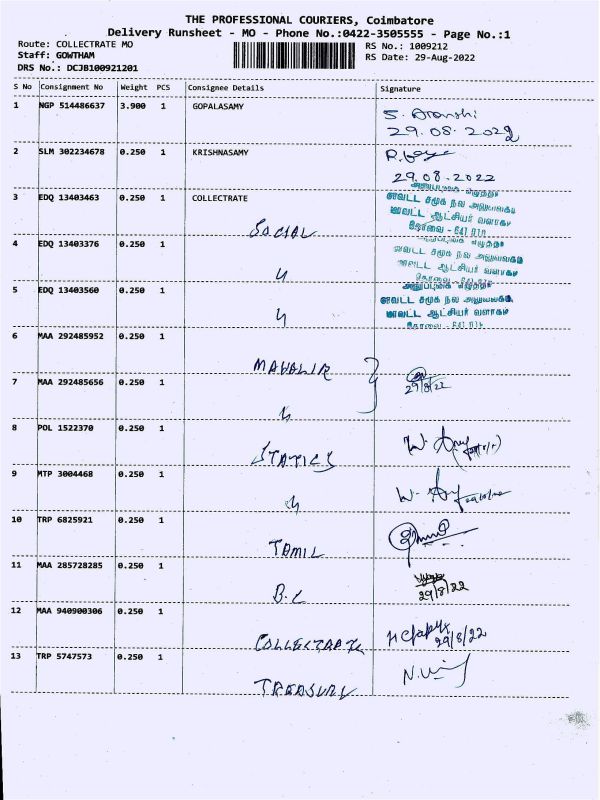 THE PROFESSIONAL COURIERS, Coimbatore
Delivery Runsheet - MO - Phone No.:0422-3505555 - Page No.:1
Route: COLLECTRATE MO RS No.: 1009212
Staff: GOWTHAM RS Date: 29-Aug-2022
DRS No.: DCJB100921201
S No Consignment No Weight PCS Consignee Details Signature
1 NGP 514486637 3.900 1 GOPALASAMY
29.08.2022
2 SLM 302234678 0.250 1 KRISHNASAMY
29.08.2022
3 EDQ 13403463 0.250 1 COLLECTRATE
மாவட்ட சமூக நல அலுவலகம்
மாவட்ட ஆட்சியர் வளாகம்
SOCIAL கோவை - 641 018
4 EDQ 13403376 0.250 1
மாவட்ட சமூக நல அலுவலகம்
மாவட்ட ஆட்சியர் வளாகம்
5 EDQ 13403560 0.250 1
மாவட்ட சமூக நல அலுவலகம்
மாவட்ட ஆட்சியர் வளாகம்
6 MAA 292485952 0.250 1
MAHALIR
7 MAA 292485656 0.250 1 29/8/22
8 POL 1522370 0.250 1
STATICS
9 MTP 3004468 0.250 1
10 TRP 6825921 0.250 1
TAMIL
11 MAA 285728285 0.250 1
B.C 29/8/22
12 MAA 940900306 0.250 1
COLLECTRATE 29/8/22
13 TRP 5747573 0.250 1
TREASURY